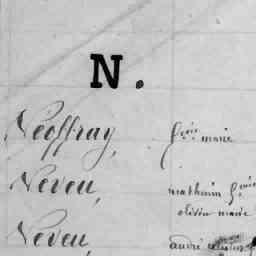 N.
Néoffray, f.çois marie
Neveu, mathurin f.çois
olivier marie
Neveu, andré